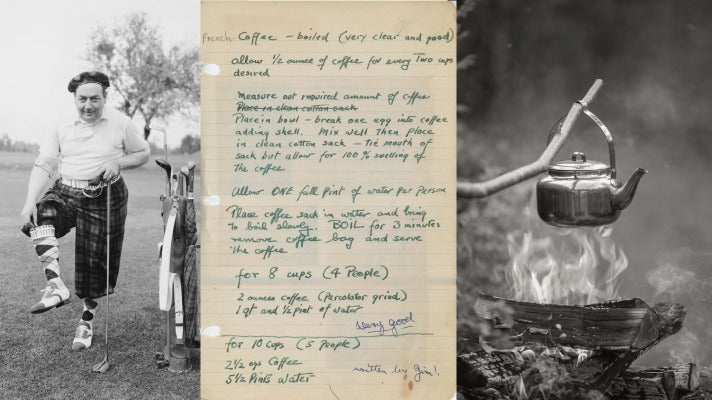 French Coffee - boiled (very clear and good)
allow 1/2 ounce of coffee for every Two cups
desired
Measure out required amount of coffee
Place in clean cotton sack
Place in bowl - break one egg into coffee
adding shell. Mix well then place
in clean cotton sack - tie mouth of
sack but allow for 100% swelling of
the coffee
Allow ONE full pint of water per person
Place coffee sack in water and bring
to boil slowly. BOIL for 3 minutes
remove coffee bag and serve
the coffee
for 8 cups (4 People)
2 ounces coffee (Percolator grind)
1 qt and 1/2 pint of water
very good
for 10 cups (5 People)
2 1/2 ozs Coffee
5 1/2 Pints water
written by Gim!